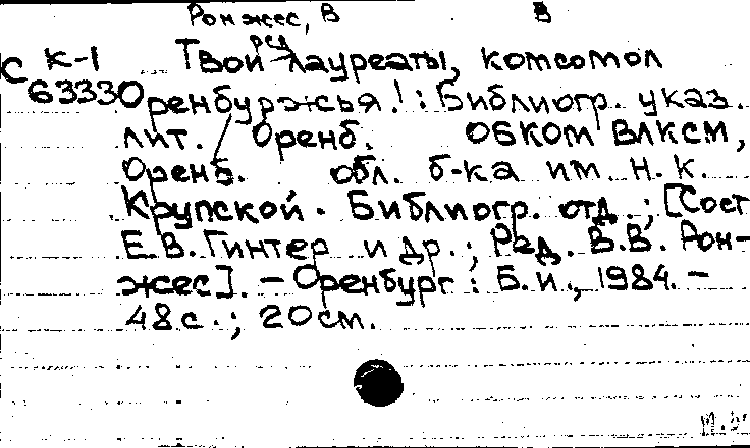 Ронжес, В В
ред
С К-1 Твои лауреаты, комсомол
63330 Оренбуржья! : Библиогр. указ.
лит. / Оренб. обком ВЛКСМ,
Оренб. обл. б-ка им. Н. К.
Крупской. Библиогр. отд. ; [Сост
Е.В. Гинтер и др. ; Ред. В.В. Рон-
жес]. - Оренбург : Б.и., 1984. -
48 с. ; 20 см.